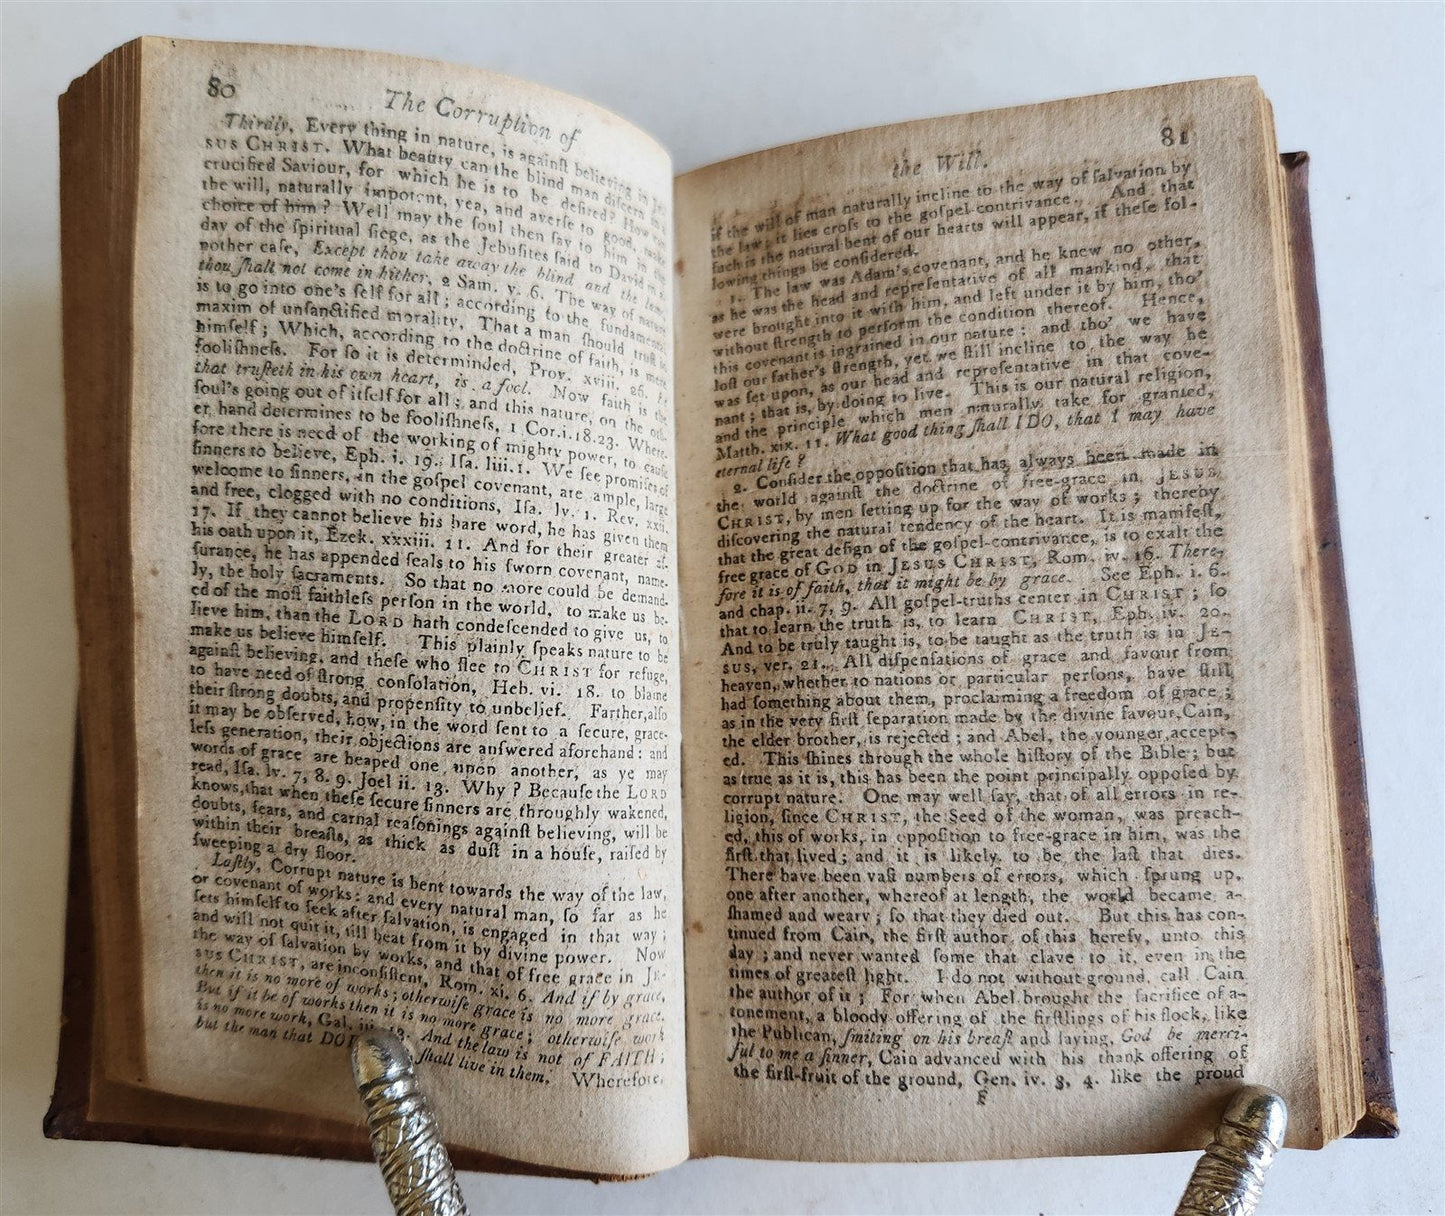 80
The Corruption of
Thirdly, Every thing in nature, is againſt believing in Je-
sus Christ. What beauty can the blind man diſcern in a
crucified Saviour, for which he is to be deſired? How can
the will, naturally impotent, yea, and averſe to good, make
choice of him? Well may the ſoul then ſay to him in the
day of the ſpiritual ſiege, as the Jebuſites ſaid to David in a-
nother caſe, Except thou take away the blind and the lame,
thou ſhall not come in hither, 2 Sam. v. 6. The way of nature
is to go into one's ſelf for all; according to the fundamental
maxim of unſanctified morality, That a man ſhould truſt in
himſelf; Which, according to the doctrine of faith, is mere
fooliſhneſs. For ſo it is determinded, Prov. xviii. 26. He
that truſteth in his own heart, is a fool. Now faith is the
ſoul's going out of itſelf for all; and this nature, on the oth-
er hand determines to be fooliſhneſs, 1 Cor. i. 18. 23. Where-
fore there is need of the working of mighty power, to cauſe
ſinners to believe, Eph. i. 19. Iſa. liii. 1. We ſee promiſes of
welcome to ſinners, in the goſpel covenant, are ample, large
and free, clogged with no conditions, Iſa. lv. 1. Rev. xxii.
17. If they cannot believe his bare word, he has given them
his oath upon it, Ezek. xxxiii. 11. And for their greater aſ-
ſurance, he has appended ſeals to his ſworn covenant, name-
ly, the holy ſacraments. So that no more could be demand-
ed of the moſt faithleſs perſon in the world, to make us be-
lieve him, than the Lord hath condeſcended to give us, to
make us believe himſelf. This plainly ſpeaks nature to be
againſt believing, and theſe who flee to Christ for refuge,
to have need of ſtrong conſolation, Heb. vi. 18. to blame
their ſtrong doubts, and propenſity to unbelief. Farther, alſo
it may be obſerved, how, in the word ſent to a ſecure, grace-
leſs generation, their objections are anſwered aforehand: and
words of grace are heaped one upon another, as ye may
read, Iſa. lv. 7, 8. 9. Joel ii. 13. Why? Becauſe the Lord
knows, that when theſe ſecure ſinners are throughly wakened,
doubts, fears, and carnal reaſonings againſt believing, will be
within their breaſts, as thick as duſt in a houſe, raiſed by
ſweeping a dry floor.
Laſtly, Corrupt nature is bent towards the way of the law,
or covenant of works: and every natural man, ſo far as he
ſets himſelf to ſeek after ſalvation, is engaged in that way;
and will not quit it, till beat from it by divine power. Now
the way of ſalvation by works, and that of free grace in Je-
sus Christ, are inconſiſtent, Rom. xi. 6. And if by grace,
then it is no more of works; otherwiſe grace is no more grace.
But if it be of works then it is no more grace; otherwiſe work
is no more work, Gal. iii. 12. And the law is not of FAITH;
but the man that DOT ſhall live in them. Wherefore,
81
the Will.
if the will of man naturally incline to the way of ſalvation by
the law, it lies croſs to the goſpel-contrivance. And that
ſuch is the natural bent of our hearts will appear, if theſe fol-
lowing things be conſidered.
1. The law was Adam's covenant, and he knew no other,
as he was the head and repreſentative of all mankind, that
were brought into it with him, and left under it by him, tho'
without ſtrength to perform the condition thereof. Hence,
this covenant is ingrained in our nature: and tho' we have
loſt our father's ſtrength, yet we ſtill incline to the way he
was ſet upon, as our head and repreſentative in that cove-
nant; that is, by doing to live. This is our natural religion,
and the principle which men naturally take for granted,
Matth. xix. 11. What good thing ſhall I DO, that I may have
eternal life?
2. Conſider the oppoſition that has always been made in
the world againſt the doctrine of free-grace in Jesus
Christ, by men ſetting up for the way of works; thereby
diſcovering the natural tendency of the heart. It is manifeſt,
that the great deſign of the goſpel-contrivance, is to exalt the
free grace of God in Jesus Christ, Rom. iv. 16. There-
fore it is of faith, that it might be by grace. See Eph. i. 6.
and chap. ii. 7, 9. All goſpel-truths center in Christ; ſo
that to learn the truth is, to learn Christ, Eph. iv. 20.
And to be truly taught is, to be taught as the truth is in Je-
sus, ver. 21. All diſpenſations of grace and favour from
heaven, whether to nations or particular perſons, have ſtill
had ſomething about them, proclaiming a freedom of grace;
as in the very firſt ſeparation made by the divine favour, Cain,
the elder brother, is rejected; and Abel, the younger, accept-
ed. This ſhines through the whole hiſtory of the Bible; but
as true as it is, this has been the point principally oppoſed by
corrupt nature. One may well ſay, that of all errors in re-
ligion, ſince Christ, the Seed of the woman, was preach-
ed, this of works, in oppoſition to free-grace in him, was the
firſt that lived; and it is likely to be the laſt that dies.
There have been vaſt numbers of errors, which ſprung up,
one after another, whereof at length, the world became a-
ſhamed and weary; ſo that they died out. But this has con-
tinued from Cain, the firſt author of this hereſy, unto this
day; and never wanted ſome that clave to it, even in the
times of greateſt light. I do not without ground call Cain
the author of it; For when Abel brought the ſacrifice of a-
tonement, a bloody offering of the firſtlings of his flock, like
the Publican, ſmiting on his breaſt and ſaying, God be merci-
ful to me a ſinner, Cain advanced with his thank offering of
the firſt-fruit of the ground, Gen. iv. 3, 4. like the proud
F